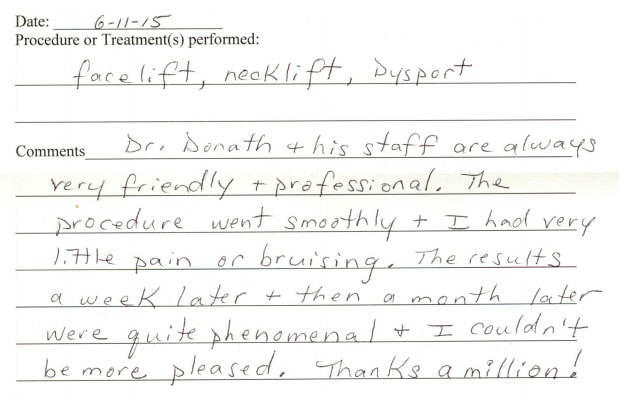 Date: 6-11-15
Procedure or Treatment(s) performed:
facelift, necklift, Dysport
Comments Dr. Donath & his staff are always
very friendly + professional. The
procedure went smoothly + I had very
little pain or bruising. The results
a week later + then a month later
were quite phenomenal + I couldn't
be more pleased. Thanks a million!